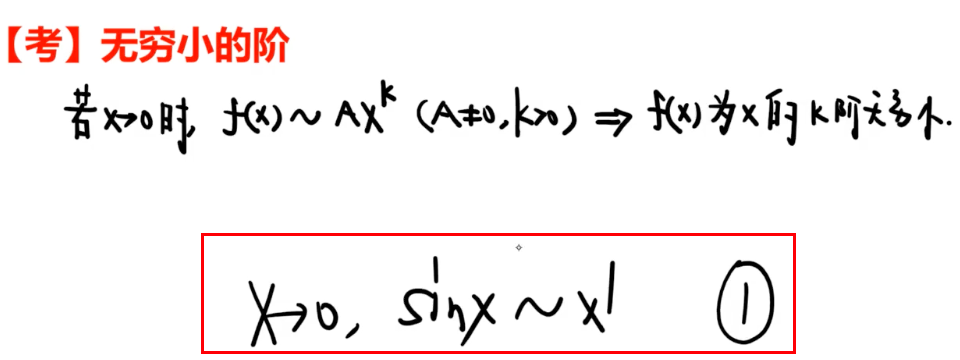 【考】无穷小的阶
若x→0时, f(x)~Ax^k (A≠0,k>0) ⇒ f(x)为x的k阶无穷小.
x→0, sinx~x^1 ①